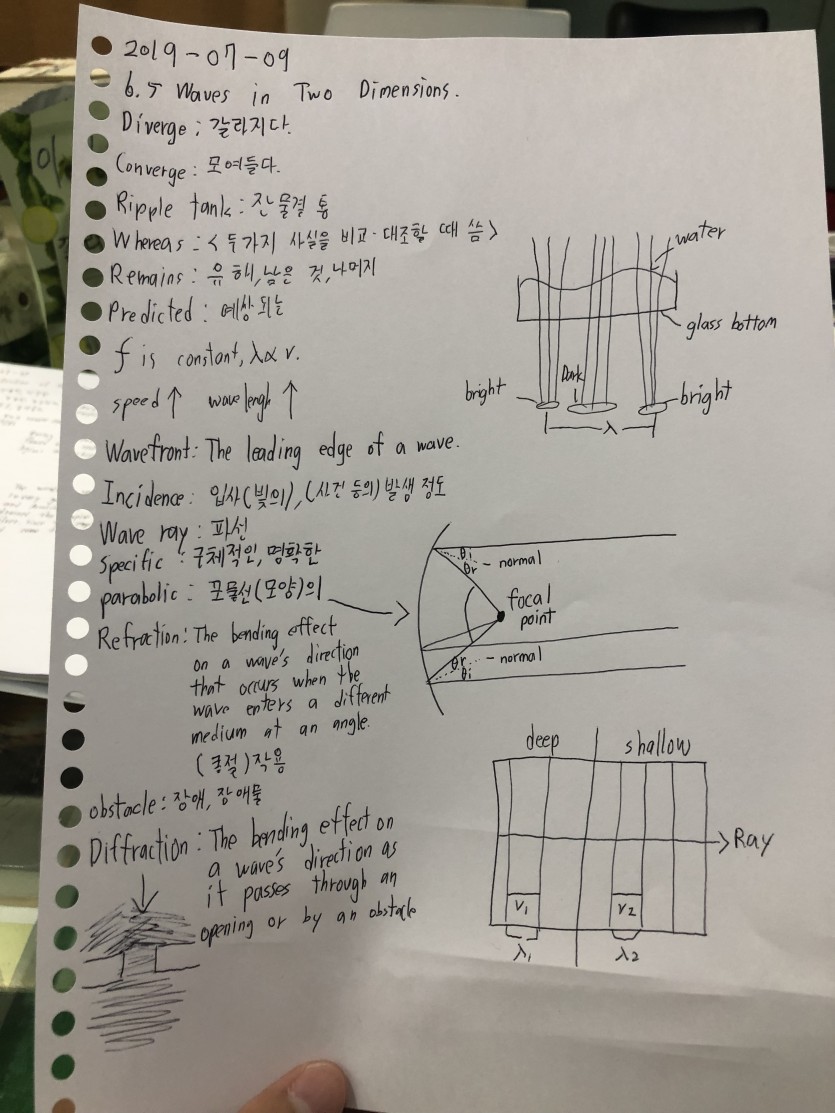 2019-07-09
6.5 Waves in Two Dimensions.
Diverge: 갈라지다.
Converge: 모여들다.
Ripple tank: 잔물결 통
Whereas: <두가지 사실을 비교·대조할 때 씀>
Remains: 유해, 남은 것, 나머지
Predicted: 예상되는
f is constant, λ∝v.
speed↑ wavelengh ↑
Wavefront: The leading edge of a wave.
Incidence: 입사(빛의), (사건 등의) 발생 정도
Wave ray: 파선
specific: 구체적인, 명확한
parabolic: 포물선(모양)의
Refraction: The bending effect
on a wave's direction
that occurs when the
wave enters a different
medium at an angle.
(굴절)작용
obstacle: 장애, 장애물
Diffraction: The bending effect on
a wave's direction as
it passes through an
opening or by an obstacle
water
glass bottom
bright
Dark
bright
λ
θi
θr - normal
focal
point
θr - normal
θi
deep shallow
Ray
V1 V2
λ1 λ2